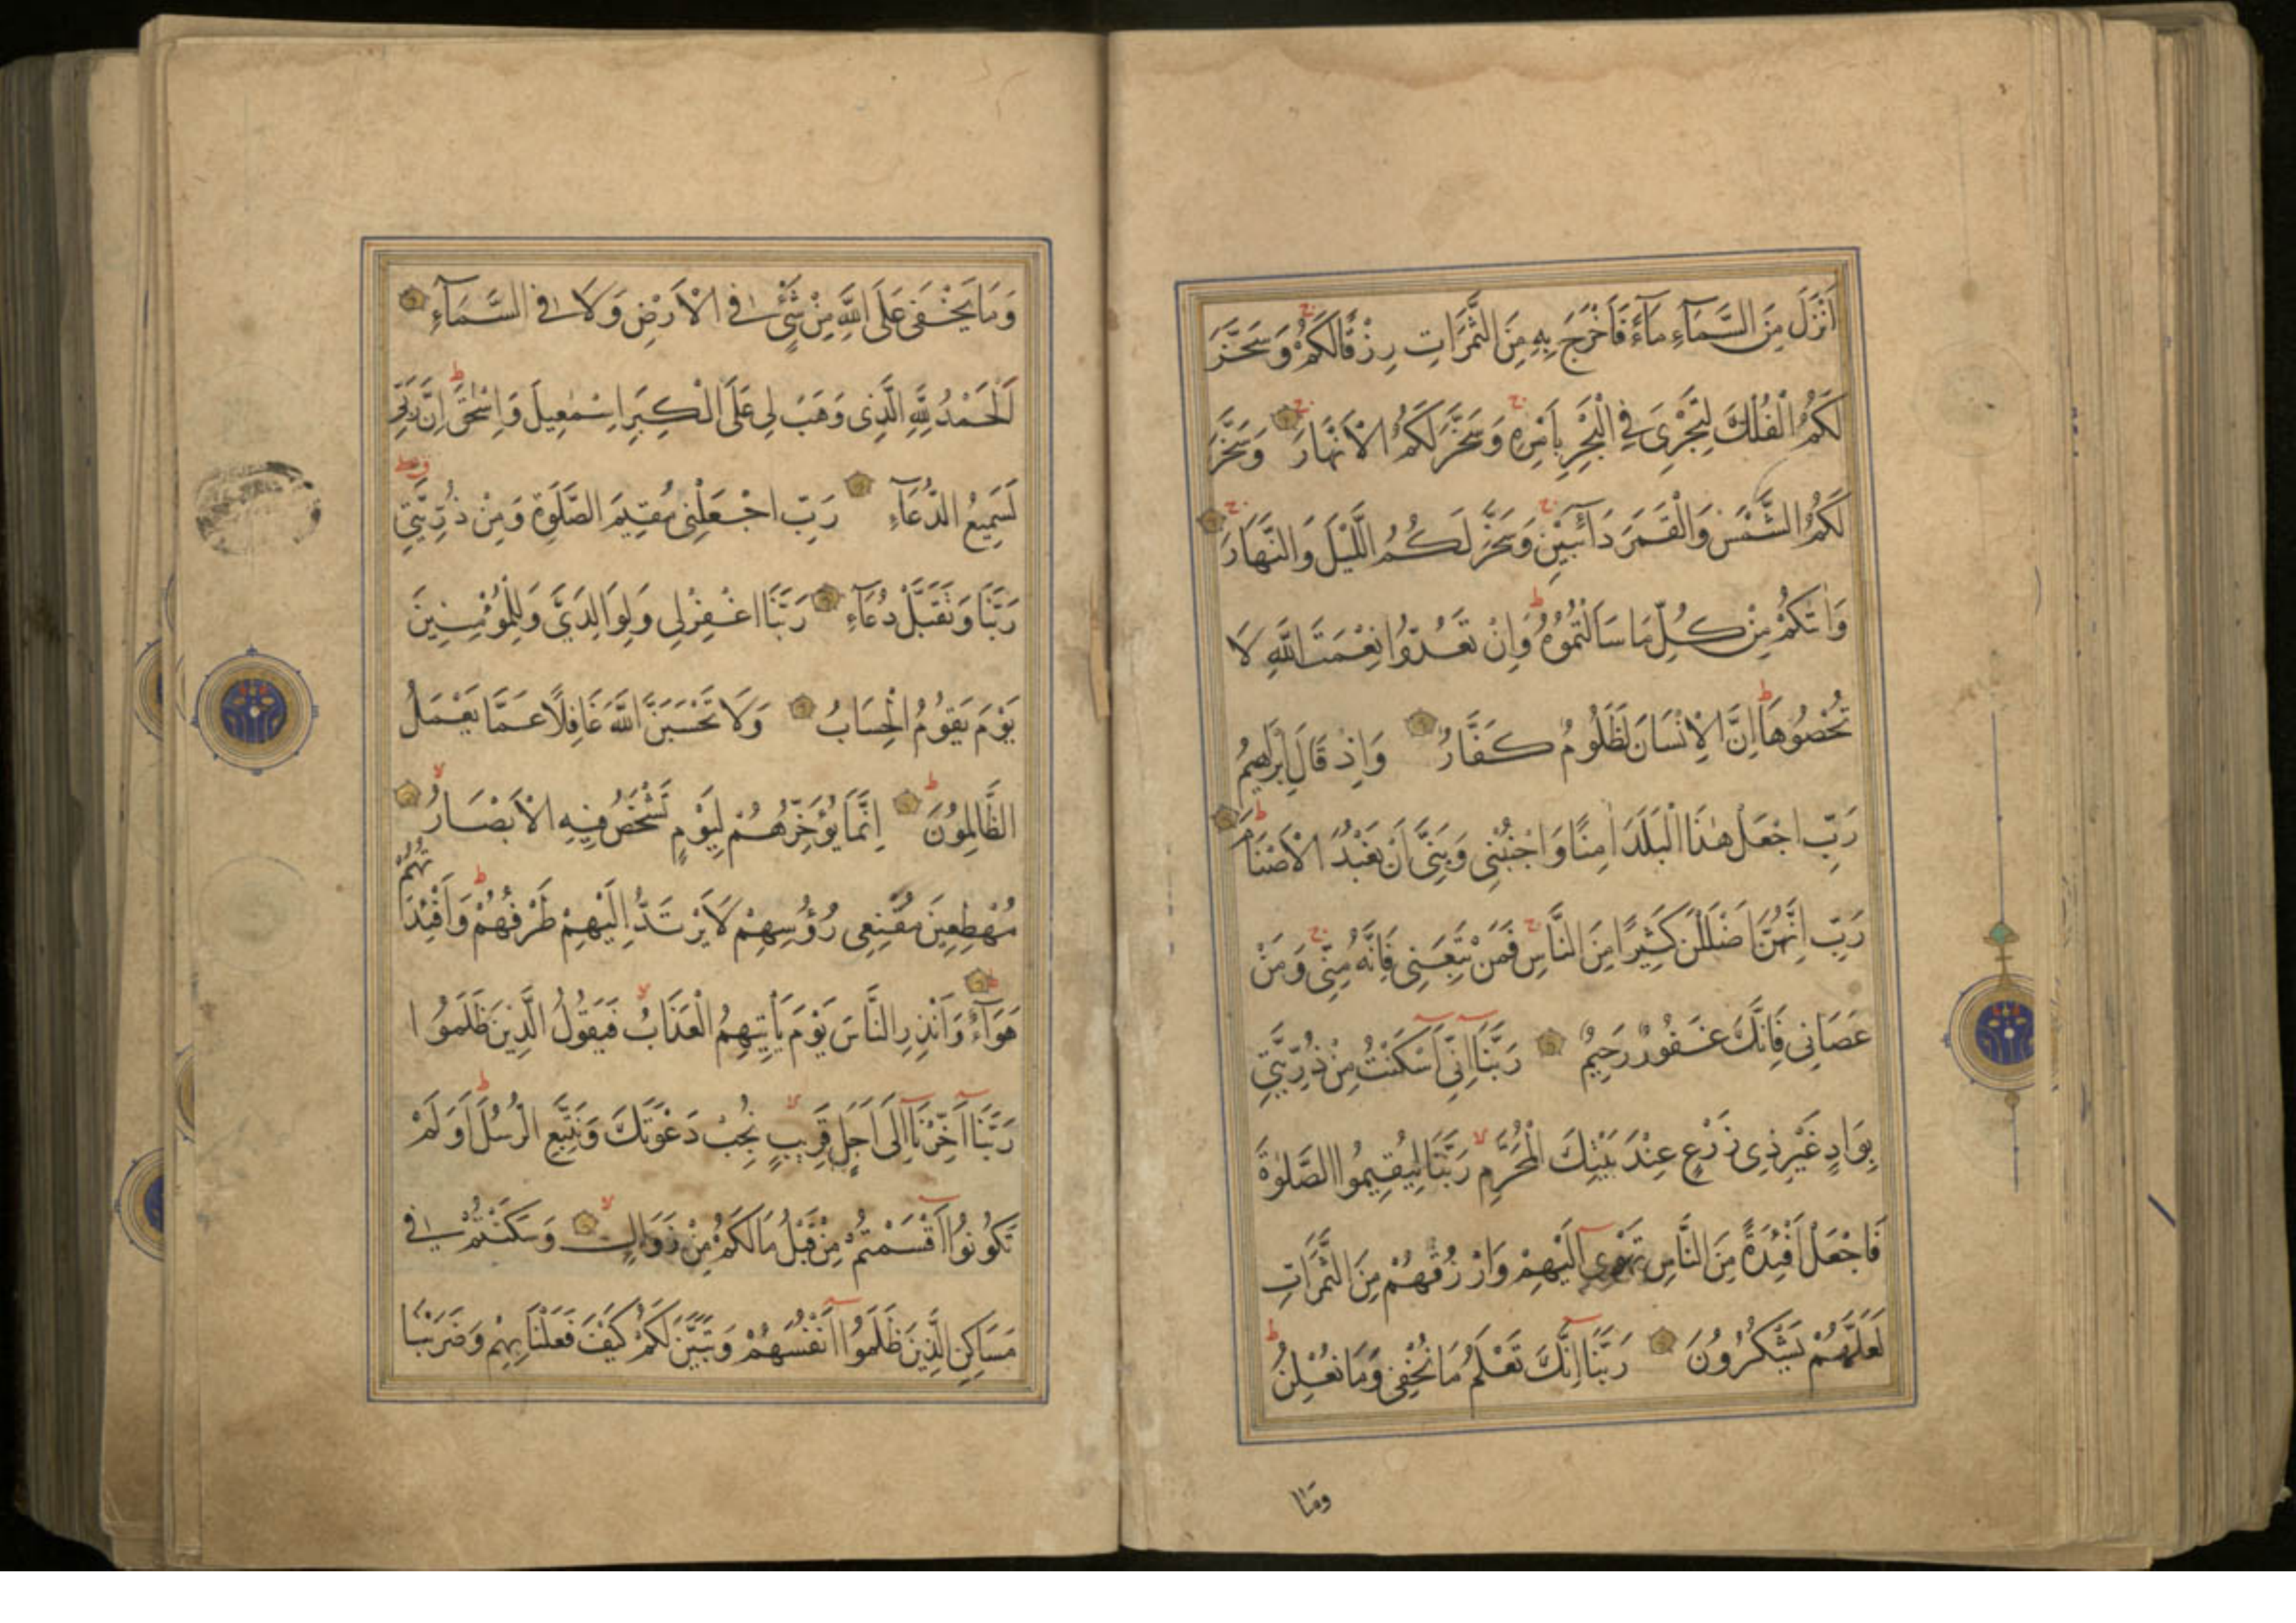 اَنْزَلَ مِنَ السَّمَآءِ مَآءً فَاَخْرَجَ بِهِ مِنَ الثَّمَرَاتِ رِزْقًا لَكُمْ وَسَخَّرَ
لَكُمُ الْفُلْكَ لِتَجْرِىَ فِي الْبَحْرِ بِاَمْرِهِ وَسَخَّرَ لَكُمُ الْاَنْهَارَ وَسَخَّرَ
لَكُمُ الشَّمْسَ وَالْقَمَرَ دَآئِبَيْنِ وَسَخَّرَ لَكُمُ اللَّيْلَ وَالنَّهَارَ
وَاٰتٰكُمْ مِنْ كُلِّ مَا سَاَلْتُمُوهُ وَاِنْ تَعُدُّوا نِعْمَتَ اللَّهِ لَا
تُحْصُوهَا اِنَّ الْاِنْسَانَ لَظَلُومٌ كَفَّارٌ وَاِذْ قَالَ اِبْرٰهِيمُ
رَبِّ اجْعَلْ هٰذَا الْبَلَدَ اٰمِنًا وَاجْنُبْنِي وَبَنِيَّ اَنْ نَعْبُدَ الْاَصْنَامَ
رَبِّ اِنَّهُنَّ اَضْلَلْنَ كَثِيرًا مِنَ النَّاسِ فَمَنْ تَبِعَنِي فَاِنَّهُ مِنِّي وَمَنْ
عَصَانِي فَاِنَّكَ غَفُورٌ رَحِيمٌ رَبَّنَا اِنِّي اَسْكَنْتُ مِنْ ذُرِّيَّتِي
بِوَادٍ غَيْرِ ذِي زَرْعٍ عِنْدَ بَيْتِكَ الْمُحَرَّمِ رَبَّنَا لِيُقِيمُوا الصَّلٰوةَ
فَاجْعَلْ اَفْئِدَةً مِنَ النَّاسِ تَهْوِي اِلَيْهِمْ وَارْزُقْهُمْ مِنَ الثَّمَرَاتِ
لَعَلَّهُمْ يَشْكُرُونَ رَبَّنَا اِنَّكَ تَعْلَمُ مَا نُخْفِي وَمَا نُعْلِنُ
وما
وَمَا يَخْفَى عَلَى اللَّهِ مِنْ شَيْءٍ فِي الْاَرْضِ وَلَا فِي السَّمَآءِ
اَلْحَمْدُ لِلَّهِ الَّذِي وَهَبَ لِي عَلَى الْكِبَرِ اِسْمٰعِيلَ وَاِسْحٰقَ اِنَّ رَبِّي
لَسَمِيعُ الدُّعَآءِ رَبِّ اجْعَلْنِي مُقِيمَ الصَّلٰوةِ وَمِنْ ذُرِّيَّتِي
رَبَّنَا وَتَقَبَّلْ دُعَآءِ رَبَّنَا اغْفِرْ لِي وَلِوَالِدَيَّ وَلِلْمُؤْمِنِينَ
يَوْمَ يَقُومُ الْحِسَابُ وَلَا تَحْسَبَنَّ اللَّهَ غَافِلًا عَمَّا يَعْمَلُ
الظَّالِمُونَ اِنَّمَا يُؤَخِّرُهُمْ لِيَوْمٍ تَشْخَصُ فِيهِ الْاَبْصَارُ
مُهْطِعِينَ مُقْنِعِي رُؤُسِهِمْ لَا يَرْتَدُّ اِلَيْهِمْ طَرْفُهُمْ وَاَفْئِدَتُهُمْ
هَوَآءٌ وَاَنْذِرِ النَّاسَ يَوْمَ يَاْتِيهِمُ الْعَذَابُ فَيَقُولُ الَّذِينَ ظَلَمُوا
رَبَّنَا اَخِّرْنَا اِلَى اَجَلٍ قَرِيبٍ نُجِبْ دَعْوَتَكَ وَنَتَّبِعِ الرُّسُلَ اَوَلَمْ
تَكُونُوا اَقْسَمْتُمْ مِنْ قَبْلُ مَا لَكُمْ مِنْ زَوَالٍ وَسَكَنْتُمْ فِي
مَسَاكِنِ الَّذِينَ ظَلَمُوا اَنْفُسَهُمْ وَتَبَيَّنَ لَكُمْ كَيْفَ فَعَلْنَا بِهِمْ وَضَرَبْنَا